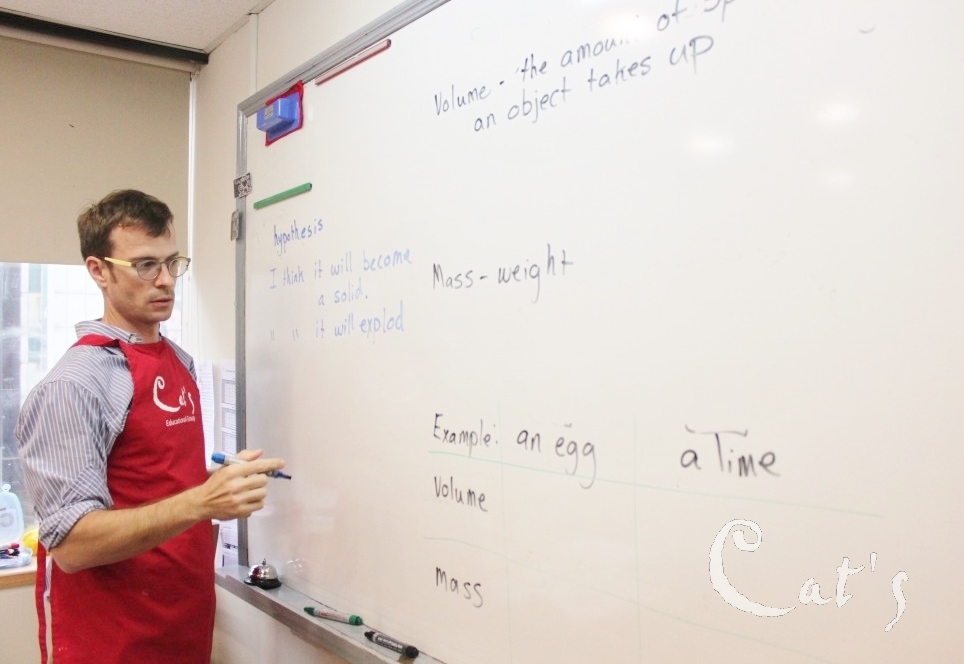 Volume - the amount of
an object takes up
hypothesis
I think it will become
a solid.
" " it will explod
Mass - weight
Example: an egg a Time
Volume
Mass
Cat's
Educational
Cat's